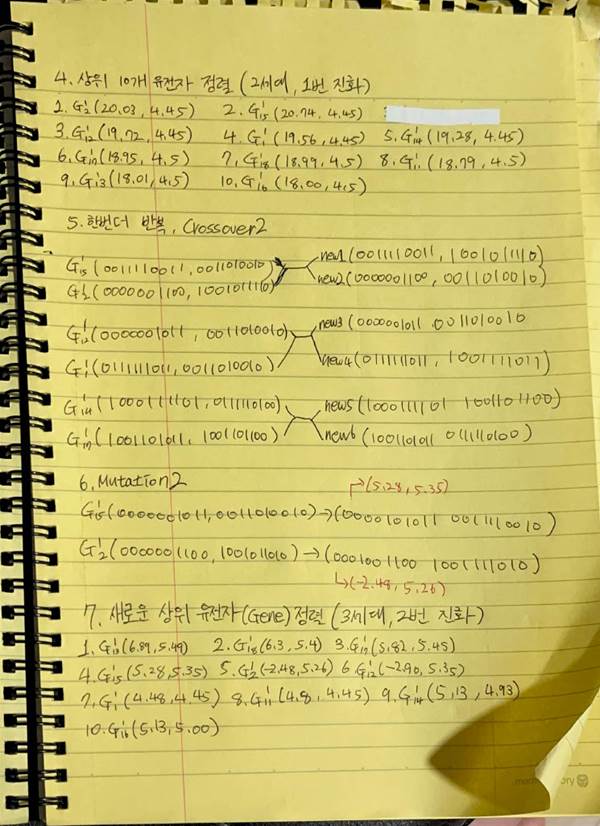 4. 상위 10개 유전자 정렬 (2세대, 1번 진화)
1. G'2 (20.03, 4.45) 2. G'15 (20.74, 4.45)
3. G'12 (19.72, 4.45) 4. G'1 (19.56, 4.45) 5. G'14 (19.28, 4.45)
6. G'17 (18.95, 4.5) 7. G'18 (18.99, 4.5) 8. G'11 (18.79, 4.5)
9. G'13 (18.01, 4.5) 10. G'16 (18.00, 4.5)
5. 한번더 반복, Crossover2
G'15 (0011110011, 0011010010) new1 (0011110011, 1001011110)
(0000001100, 1001011110) new2 (0000001100, 0011010010)
G'12 (0000001011, 0011010010) new3 (0000001011 0011010010
G'1 (0111111011, 0011010010) new4 (0111111011, 1001111011)
G'14 (1000111101, 0111110100) new5 (1000111101 1001101100)
G'17 (1001101011, 1001101100) new6 (1001101011 0111110100)
6. Mutation2
(5.28, 5.35)
G'15 (0000001011, 0011010010) → (0000101011 0011110010)
G'2 (0000001100, 1001011010) → (0001001100 1001111010)
(-2.48, 5.26)
7. 새로운 상위 유전자(Gene) 정렬 (3세대, 2번 진화)
1. G'13 (6.89, 5.49) 2. G'18 (6.3, 5.4) 3. G'17 (5.82, 5.45)
4. G'15 (5.28, 5.35) 5. G'2 (-2.48, 5.26) 6 G'12 (-2.90, 5.35)
7. G'1 (4.48, 4.45) 8. G'11 (4.8, 4.45) 9. G'14 (5,13, 4.93)
10. G'16 (5.13, 5.00)